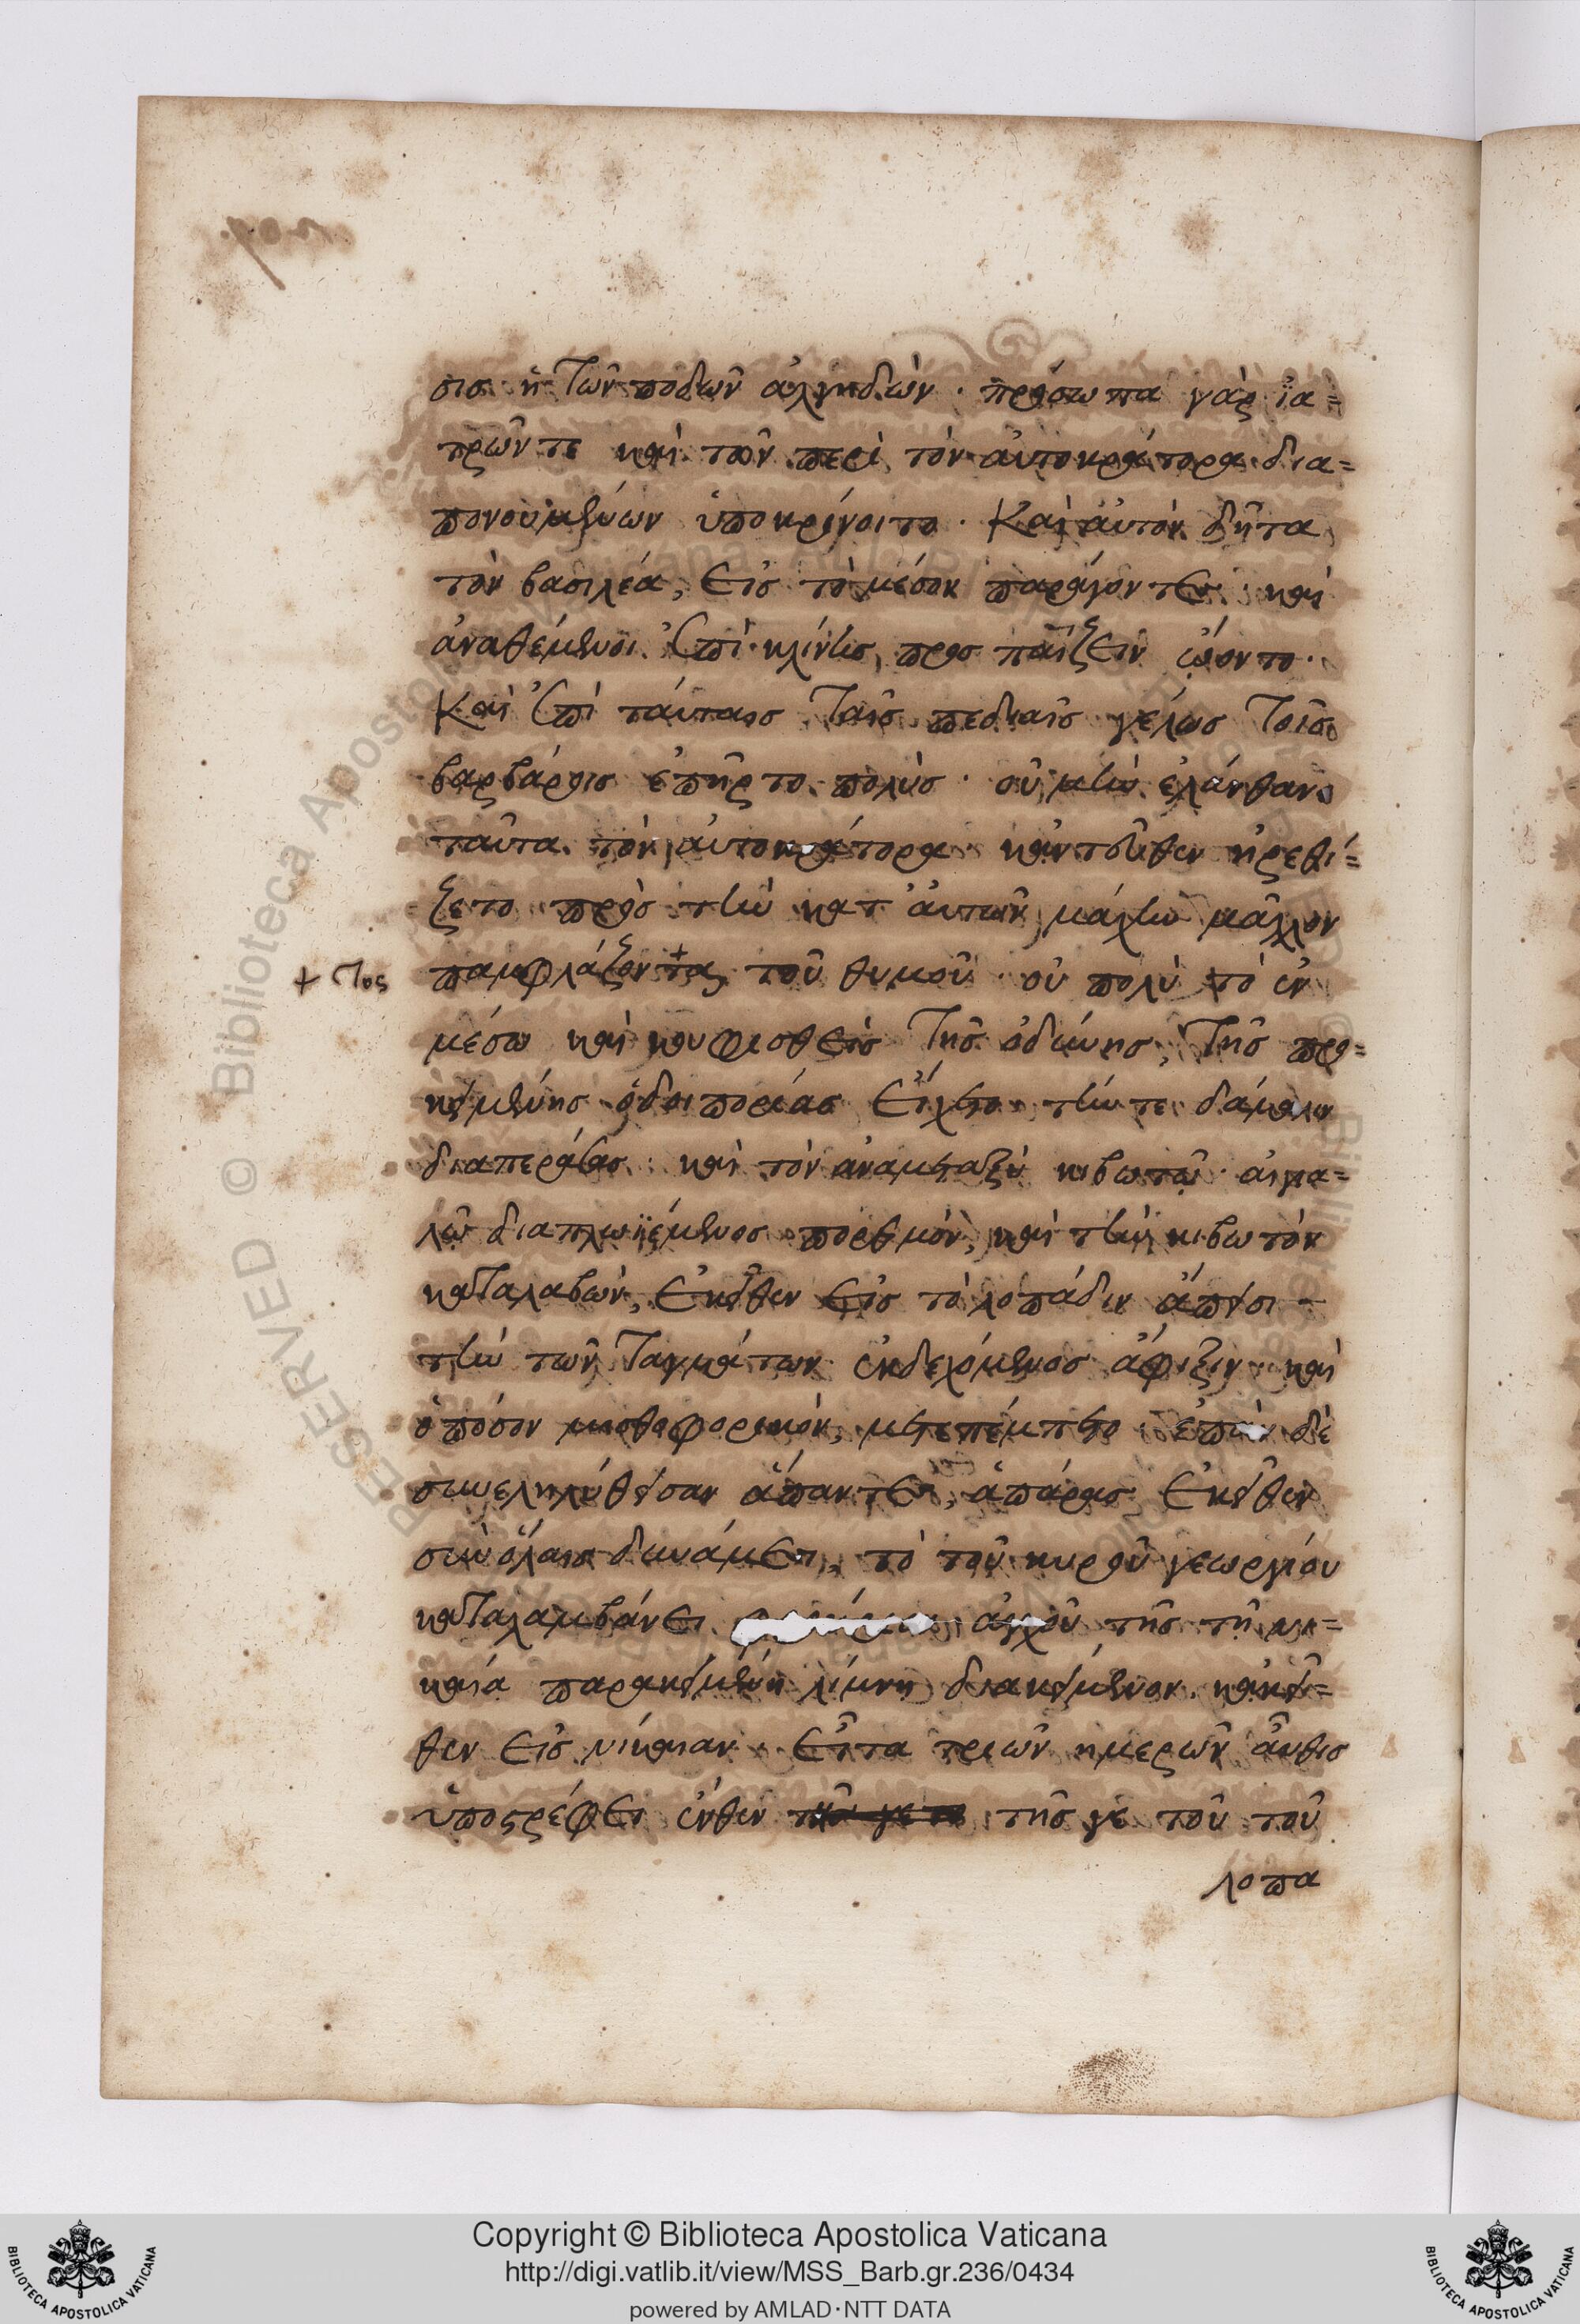 σις ἡ τῶν ποδῶν ἀλγηδών· πρόσωπα γὰρ ἰα=
τρῶν τε καὶ τῶν περὶ τὸν ἀυτοκράτορα δια=
πονουμένων ὑποκρίνοιτο· Καὶ ἀυτὸν δῆτα
τὸν βασιλέα, εἰς τὸ μέσον παράγοντες· καὶ
ἀναθέμενοι ἐπὶ κλίνης, προσπαίζειν ᾤοντο·
Καὶ ἐπὶ τάυταις ταῖς πεδιαῖς γέλως τοῖς
βαρβάροις ἐπῆρτο πολύς· οὐ μὴν ἐλάνθανο
ταῦτα τὸν ἀυτοκράτορα· κἀντεῦθεν ἠρεθί=
ζετο πρὸς τὴν κατ' ἀυτῶν μάχην μᾶλλον
+ τος παμφλάζοντας τοῦ θυμοῦ· οὐ πολὺ τὸ ἐν
μέσω καὶ κουφισθεὶς τῆς ὀδύνης, τῆς προ=
κειμένης ὁδοιπορίας εἴχετο· τήν τε δάμαλιν
διαπεράσας· καὶ τὸν ἀναμεταξὺ κιβωτοῦ· ἀιγια=
λοῦ διαπλωϊέμενος πορθμόν, καὶ τὴν κιβωτὸν
καταλαβών, ἐκεῖθεν εἰς τὸ λοπάδιν ἄπεισι·
τὴν τῶν ταγμάτων ἐκδεχόμενος ἄφιξιν· καὶ
ὁπόσον μισθοφορικόν, μετεπέμπετο· ἐπὰν δὲ
συνεληλύθεισαν ἅπαντες, ἀπάρας ἐκεῖθεν
σὺν ὅλαις δυνάμεσι, τὸ τοῦ κυροῦ γεωργίου
καταλαμβάνει ἀγχοῦ τῆς τῇ νι=
καία παρακειμένη λίμνη διακείμενον· κἀκεῖ=
θεν εἰς νίκαιαν· εἶτα τριῶν ἡμερῶν ἄυθις
ὑποστρέφει ἔνθεν τῆς γε τοῦ τοῦ
λοπα
Copyright © Biblioteca Apostolica Vaticana
http://digi.vatlib.it/view/MSS_Barb.gr.236/0434
powered by AMLAD·NTT DATA
BIBLIOTECA APOSTOLICA VATICANA
BIBLIOTECA APOSTOLICA VATICANA